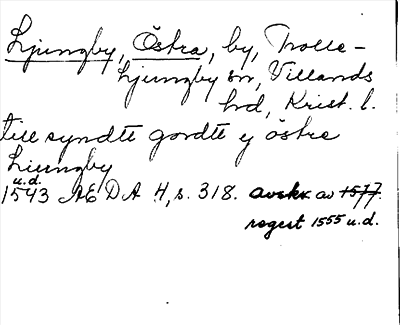 Ljungby, Östra, by, Trolle-
Ljungby sn, Villands
hd, Krist. l.
till syndtt gordtt y östre
Liungby
u.d.
1543 AEDA 4, s. 318. avskr. av 1577.
regest 1555 u.d.